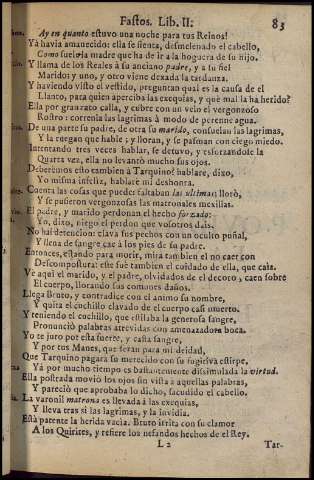 Fastos. Lib. II: 83
Ay en quanto estuvo una noche para tus Reinos!
Yà havia amanecido: ella se sienta, desmelenado el cabello,
Como suele la madre que ha de ir a la hoguera de su hijo.
Y llama de los Reales à su anciano padre, y a su fiel
Marido: y uno, y otro viene dexada la tardanza.
Y haviendo visto el vestido, preguntan qual es la causa de el
Llanto, para quien aperciba las exequias, y què mal la ha herido?
Ella por gran rato calla, y cubre con un velo el vergonzoso
Rostro: correnla las lagrimas à modo de perenne agua.
De una parte su padre, de otra su marido, consuelan las lagrimas,
Y la ruegan que hable; y lloran, y se pasman con ciego miedo.
Intentando tres veces hablar, se detuvo, y esforzandose la
Quarta vez, ella no levantò mucho sus ojos.
Deberèmos esto tambien à Tarquino? hablare, dixo,
Yo misma infeliz, hablarè mi deshonra.
Cuenta las cosas que puede: faltaban las ultimas; llorò,
Y se pusieron vergonzosas las matronales mexillas.
El padre, y marido perdonan el hecho forzado:
Yo, dixo, niego el perdon que vosotros dais.
No hai detencion: clava sus pechos con un oculto puñal,
Y llena de sangre cae à los pies de su padre.
Entonces, estando para morir, mira tambien el no caer con
Descompostura: este fuè tambien el cuidado de ella, que caìa.
Ve aqui el marido, y el padre, olvidados de el decoro, caen sobre
El cuerpo, llorando sus comunes daños.
Llega Bruto, y contradice con el animo su nombre,
Y quita el cuchillo clavado de el cuerpo casi muerto.
Y teniendo el cuchillo, que estilaba la generosa sangre,
Pronunciò palabras atrevidas con amenazadora boca.
Yo te juro por esta fuerte, y casta sangre,
Y por tus Manes, que seran para mi deidad,
Que Tarquino pagara su merecido con su fugitiva estirpe,
Yà por mucho tiempo es bastantemente dissimulada la virtud.
Ella postrada moviò los ojos sin vista à aquellas palabras,
Y pareciò que aprobaba lo dicho, sacudido el cabello.
La varonil matrona es llevada à las exequias,
Y lleva tras si las lagrimas, y la invidia.
Està patente la herida vacia. Bruto irrita con su clamor
A los Quirites, y refiere los nefandos hechos de el Rey.
L 2 Tar-